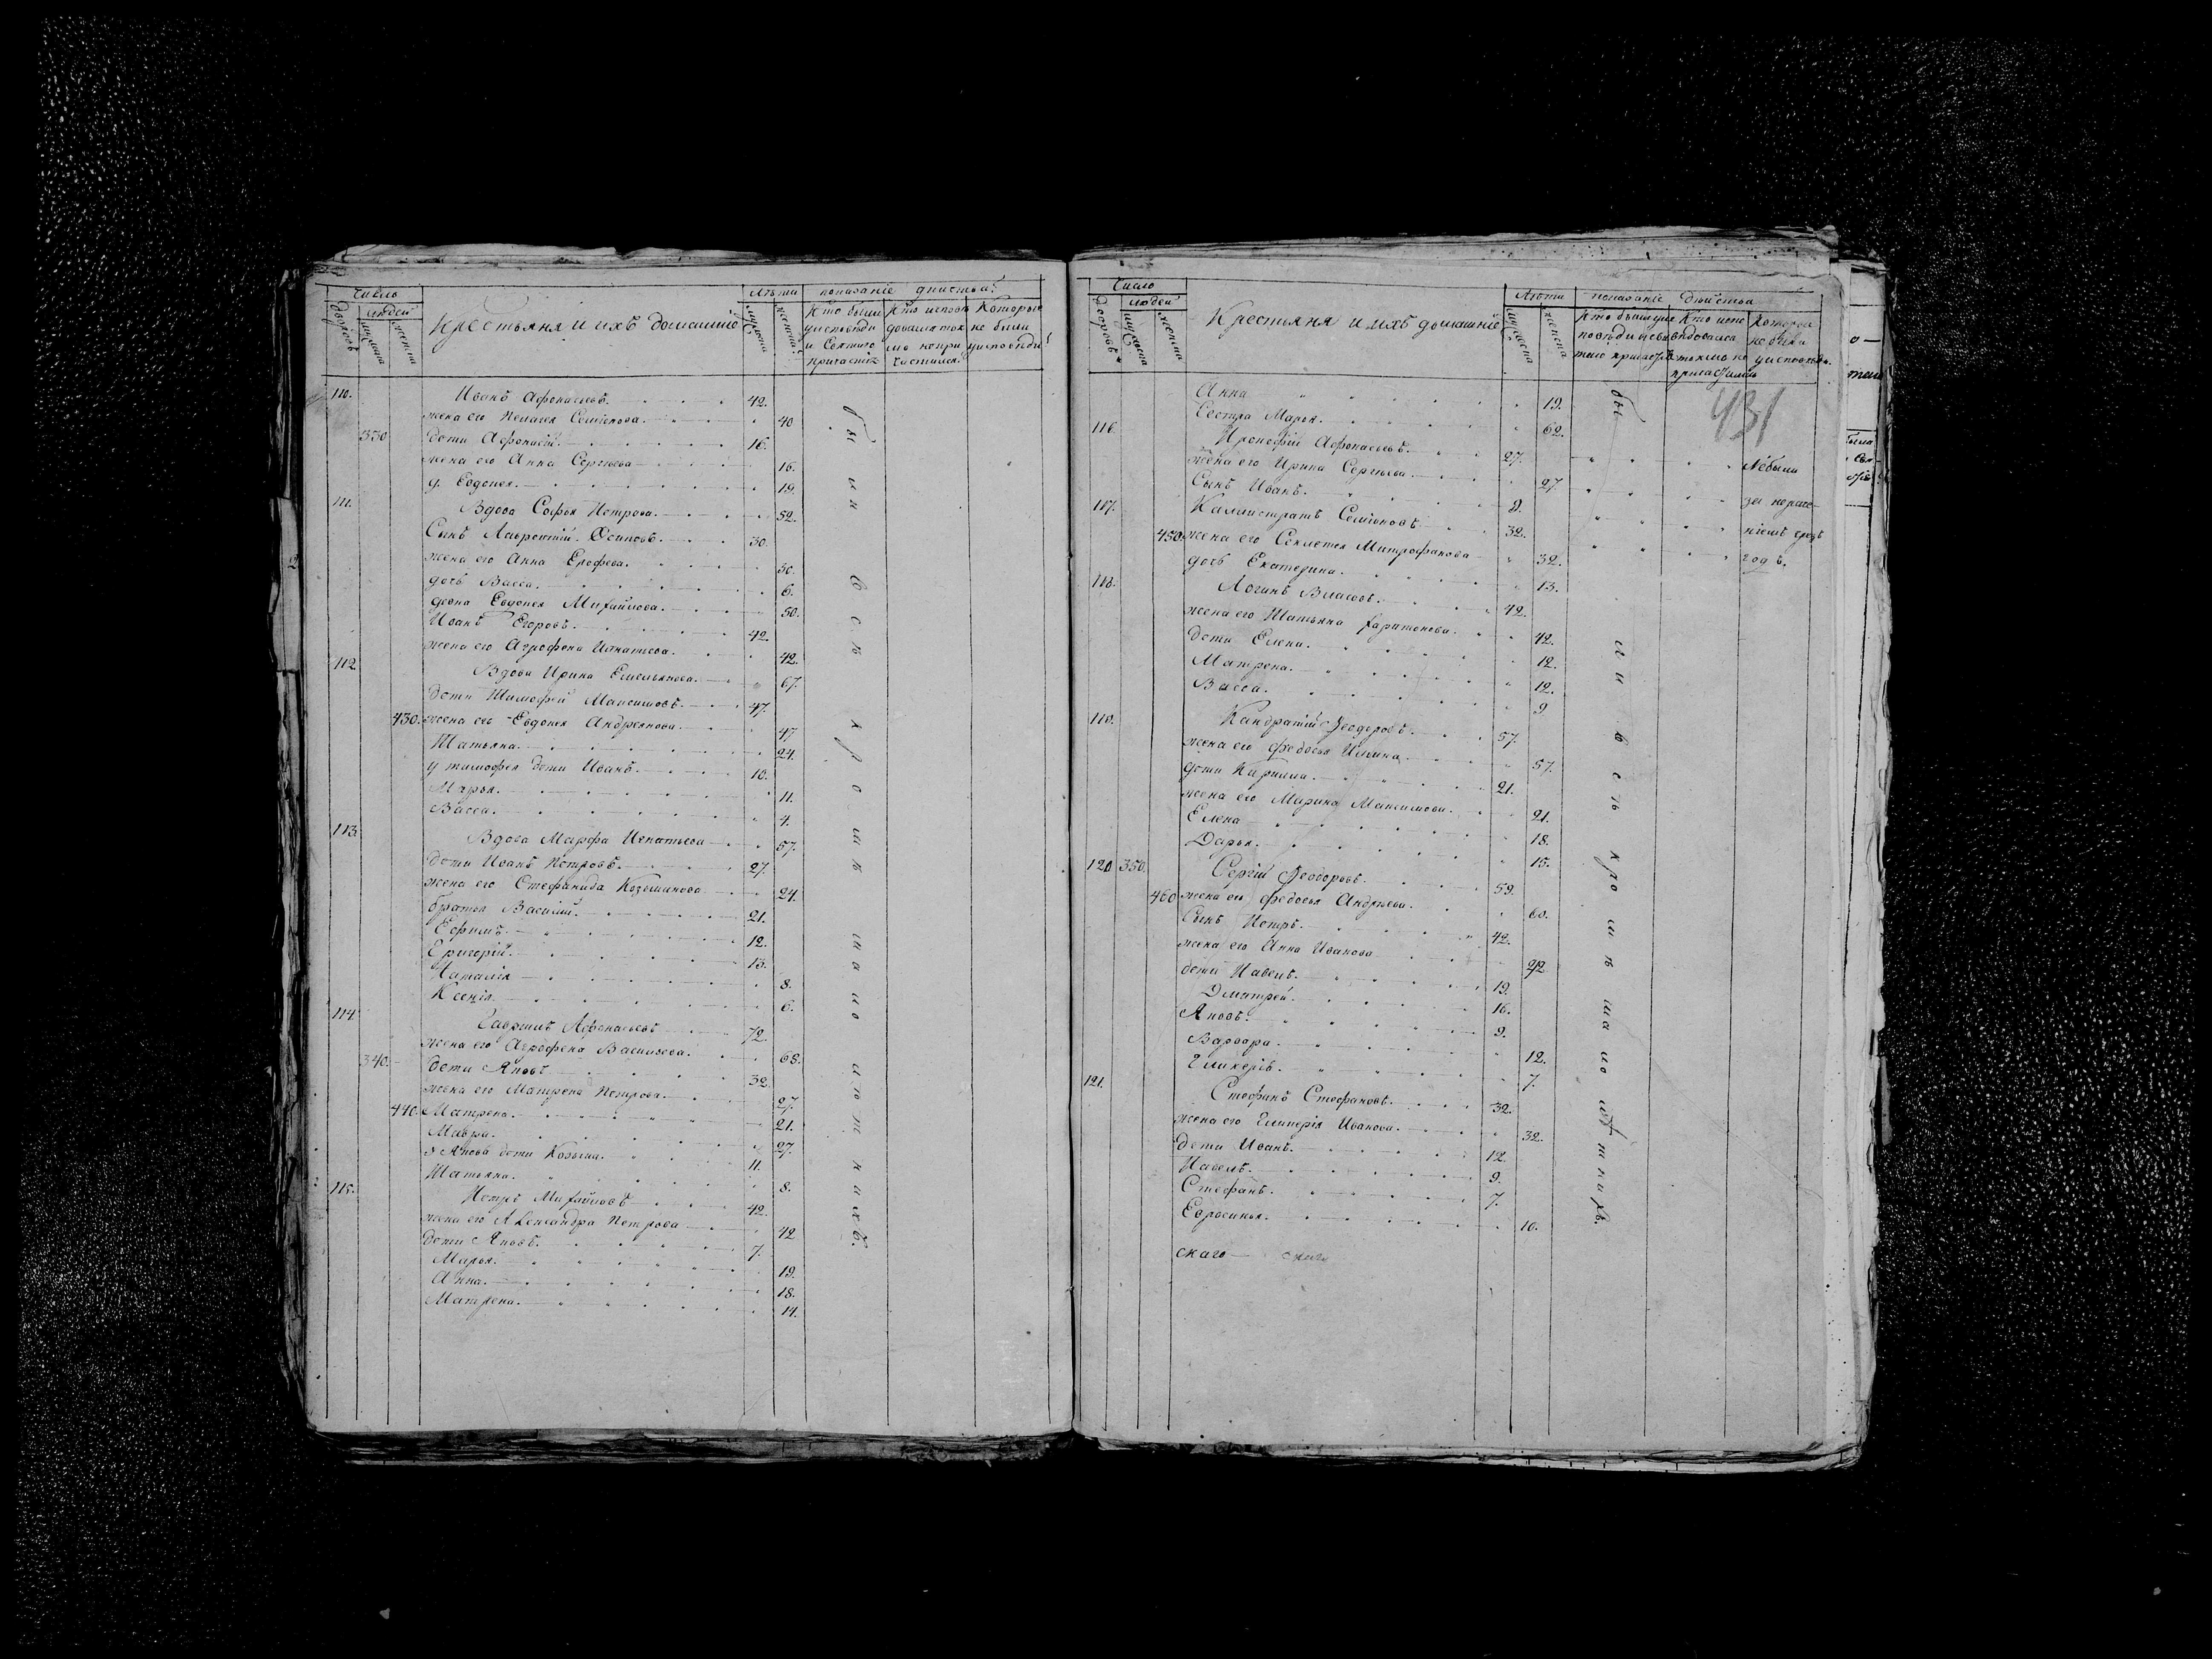 Число
людей
дворовъ
мужеска
женска
Крестьяня и ихъ домашніе
Лѣта
мужеска
женска
показаніе дѣиства
Кто были у исповѣди и Святаго причастія
Кто исповѣдовался токмо не причастился
Которые не были у исповѣди
110. Иванъ Афонасьевъ. 42.
жена его Пелагея Семіонова. 40
330 дѣти Афонасій. 16.
жена его Анна Сергѣева 16.
д. Евдокея. 19.
111. Вдова Софья Петрова. 52.
Сынъ Лаврентій Осиповъ. 30.
жена его Анна Ерофеева. 30.
дочь Васса. 6.
девка Евдокея Михайлова. 50.
Иванъ Егоровъ. 42.
жена его Агрофена Игнатьева. 42.
112 Вдова Ирина Емельянова. 67.
дѣти Тимофей Максимовъ. 47.
430. жена его Евдокея Андреянова. 47
Татьяна. 24.
у тимофея дѣти Иванъ. 10.
Марья. 11.
Васса. 4.
113. Вдова Марфа Игнатьева 57.
дѣти Иванъ Петровъ. 27.
жена его Стефанида Козьминова 24.
братья Василій. 21.
Ефимъ. 12.
Григорій. 13.
Наталія 8.
Ксенія. 6.
114. Гаврилъ Афонасьевъ 72.
жена его Агрофена Васильева. 68.
340. дѣти Яковъ 32.
жена его Матрена Петрова. 27.
440. Матрена. 21.
Мавра. 27.
у Якова дѣти Козьма. 11.
Татьяна. 8.
115. Петръ Михайловъ 42.
жена его Александра Петрова 42
дѣти Яковъ. 7.
Марья. 19.
Анна. 18.
Матрена. 14.
были всѣ кромѣ малолѣтнихъ.
Число
людей
дворовъ
мужеска
женска
Крестьяня и ихъ домашніе
Лѣта
мужеска
женска
показаніе дѣиства
431
Анна 19.
Сестра Марья. 62.
116. Прокофій Афонасьевъ. 27.
жена его Ирина Сергѣева. 27.
Сынъ Иванъ. 2.
117. Калистратъ Семіоновъ. 32.
450. жена его Секлетея Митрофанова 32.
дочь Екатерина. 13.
118. Логинъ Власовъ. 42.
жена его Татьяна Харитонова. 42.
дѣти Елена. 12.
Матрена. 12.
Васса. 9
119. Кандратій Ѳеодоровъ. 57.
жена его Федосья Ильина 57.
дѣти Кирилла. 21.
жена его Марина Максимова. 21.
Елена 18.
Дарья. 15.
120 350. Сергій Ѳеодоровъ. 59.
460 жена его Федосья Андреева. 60.
Сынъ Петръ. 42.
жена его Анна Иванова 42
дѣти Павелъ. 19.
Дмитрей. 16.
Яковъ. 9.
Варвара. 12.
Гликерія. 7.
121. Стефанъ Стефановъ. 32.
жена его Гликерія Иванова. 32.
дѣти Иванъ. 12.
Павелъ. 9.
Стефанъ. 7.
Евросинья. 10.
скаго
Небыли
годъ.
были всѣ кромѣ малолѣтнихъ.